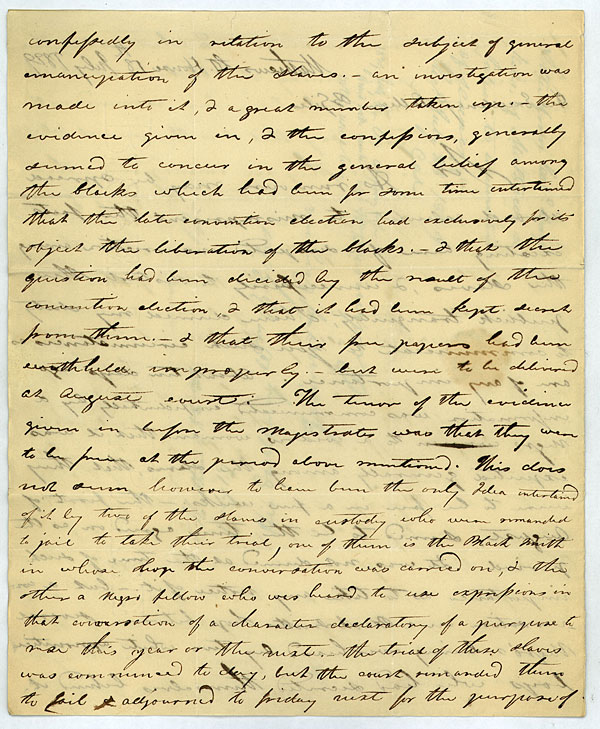 confessedly in relation to the subject of general
emancipation of the slaves. - an investigation was
made into it, & a great number taken up. - the
evidence given in, & the confessions, generally
seemed to concur in the general belief among
the blacks which had been for some time intertained
that the late convention election had exclusively for its
object the liberation of the blacks. - & that the
question had been decided by the result of the
convention election, & that it had been kept secret
from them. - & that their free papers had been
withheld improperly. - but were to be delivered
at August court. The tenor of the evidence
given in before the Magistrates was that they were
to be free at the period above mentioned. This does
not seem however to have been the only Idea intertained
of it by two of the slaves in custody who were remanded
to jail to take their trial, one of them is the Black Smith
in whose shop the conversation was carried on, & the
other a Negro fellow who was heard to use expressions in
that conversation of a character declaratory of a purpose to
rise this year or the next. - the trial of these slaves
was commenced to day, but the court remanded them
to jail & adjourned to friday next for the purpose of